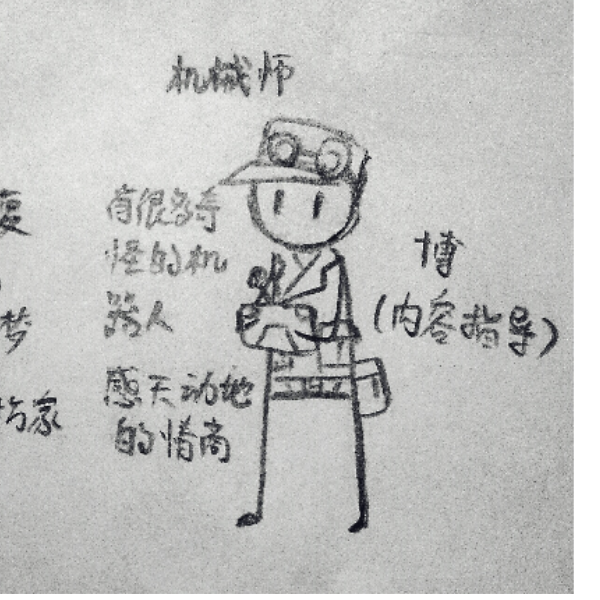 机械师
有很多奇
怪的机
路人
感天动地
的情商
博
(内容指导)
复
梦
家